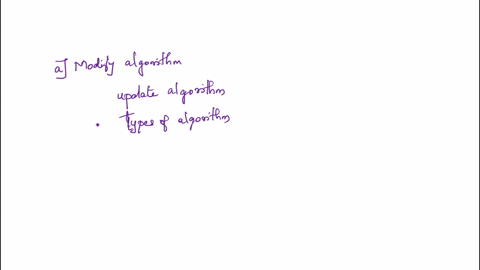 a] Modify algorithm
update algorithm
• Types of algorithm